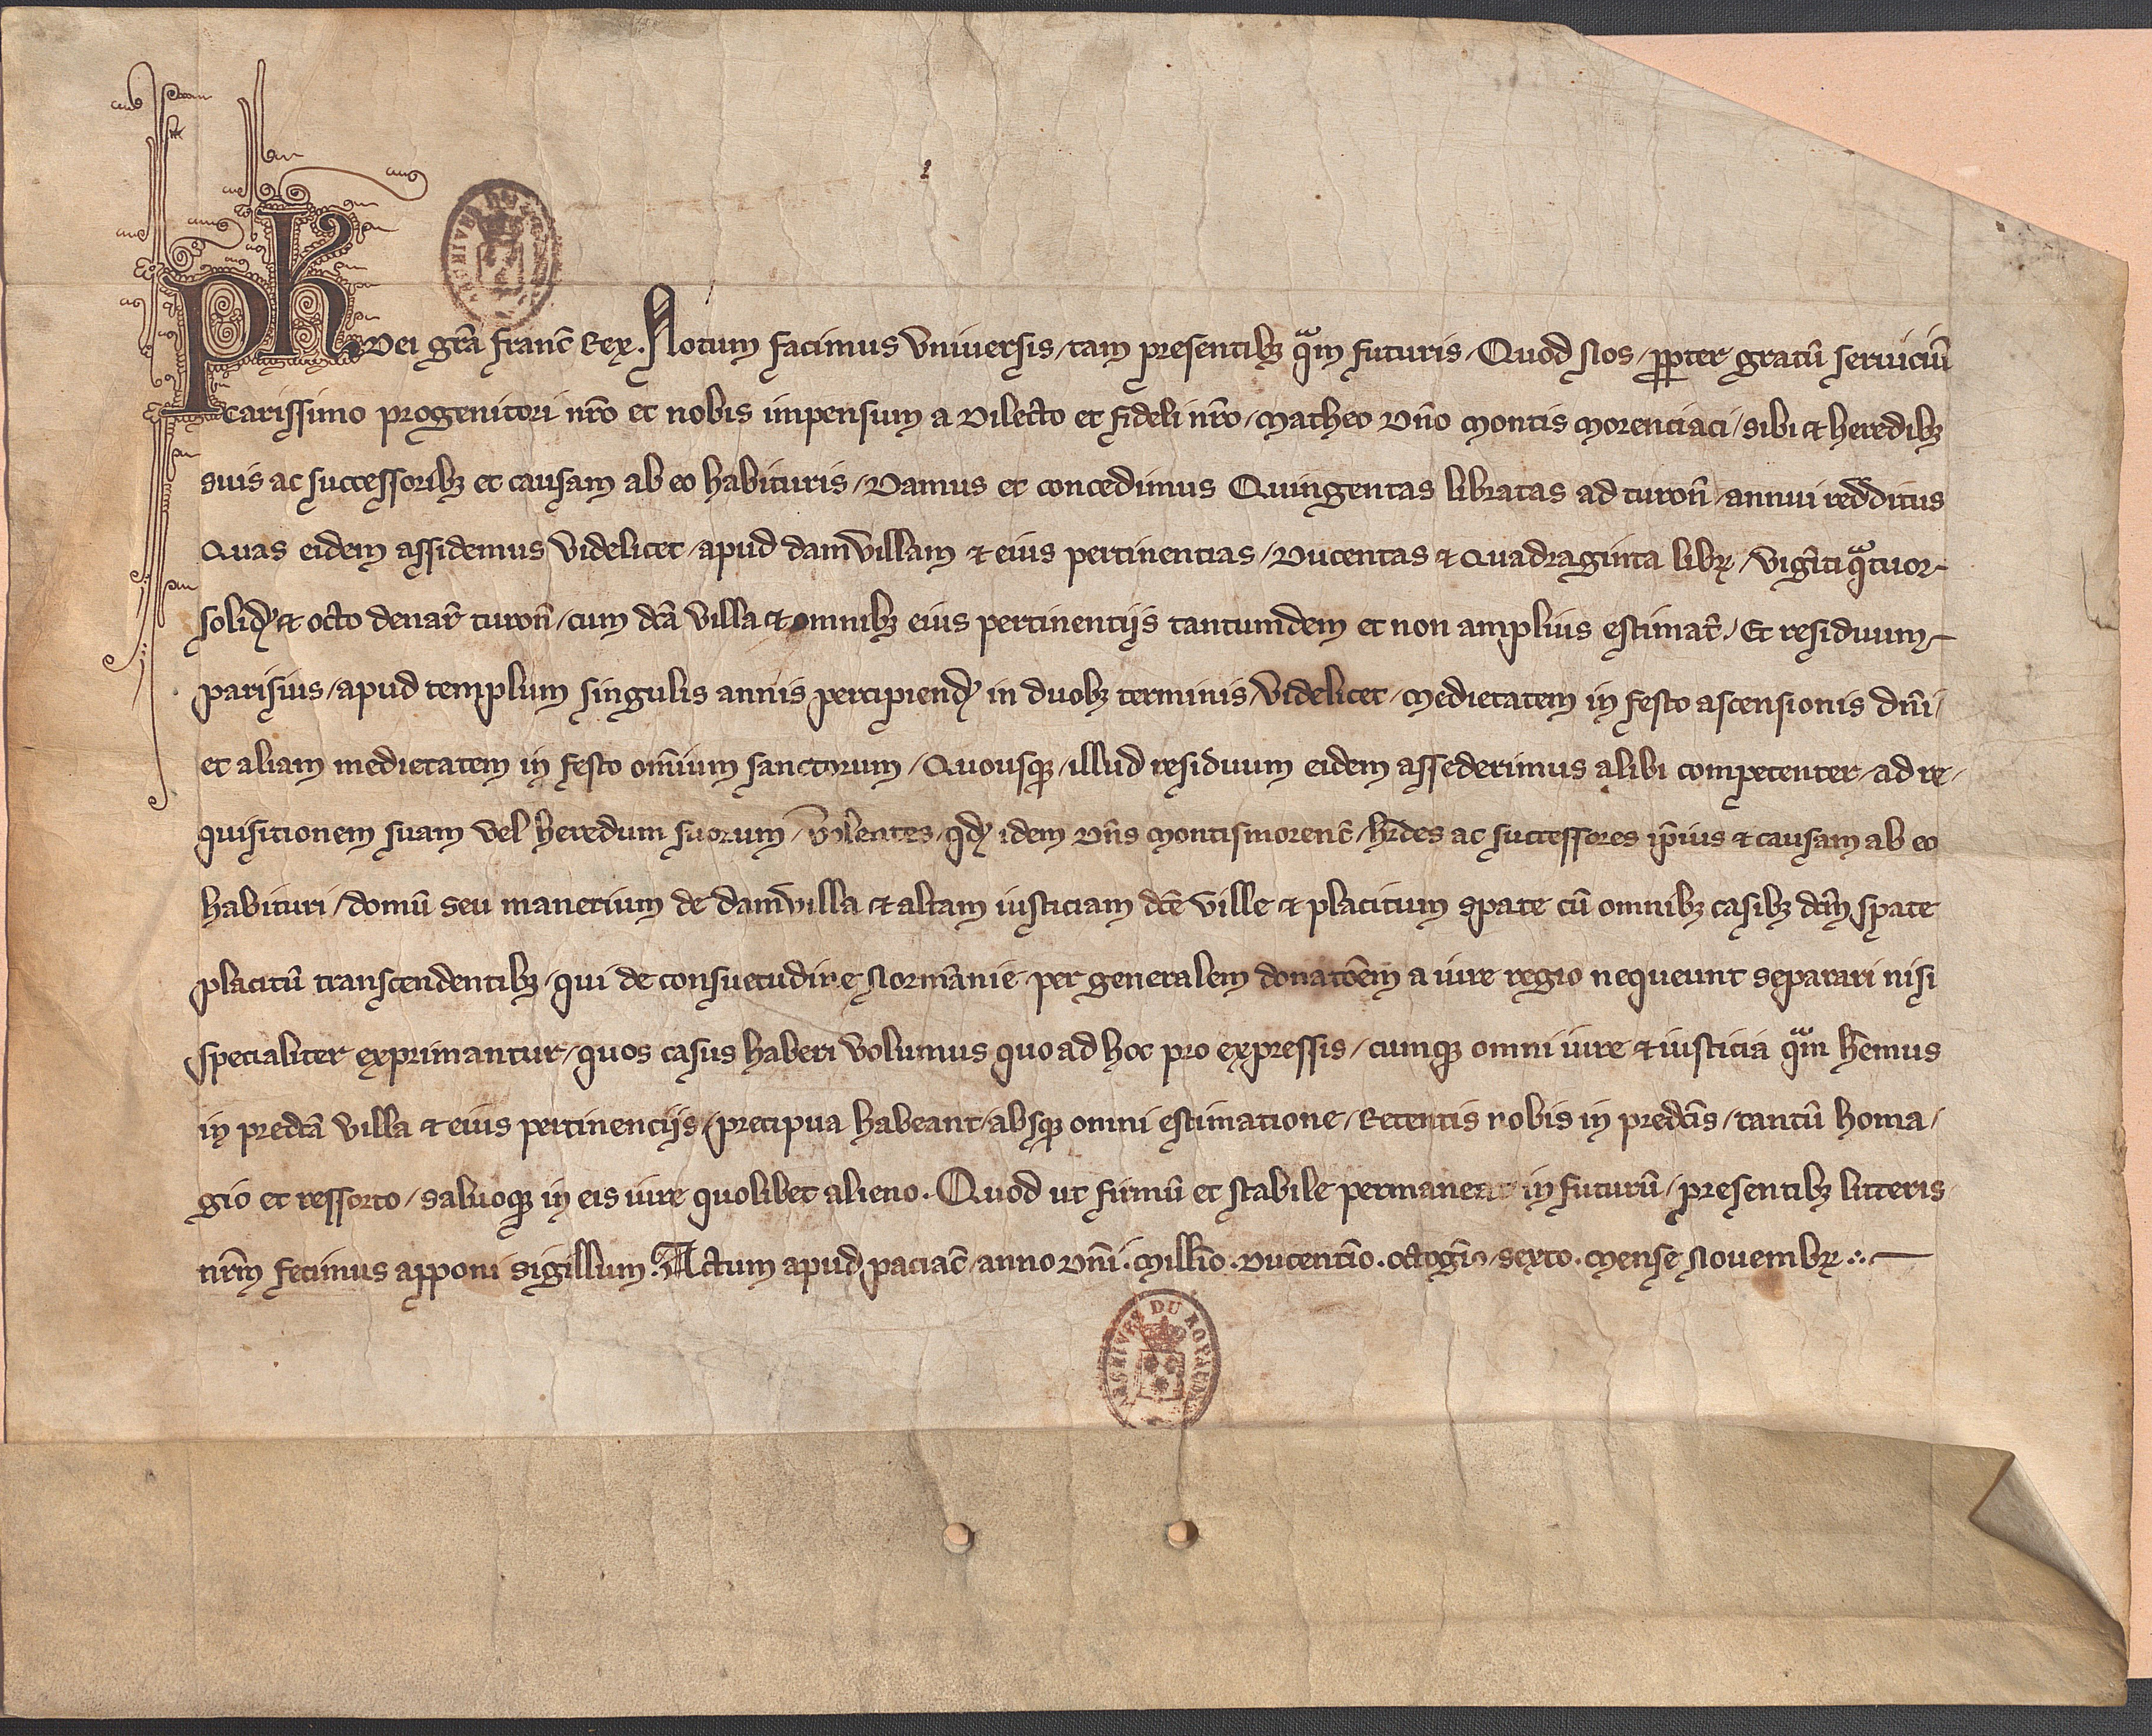 ARCHIVES
Ph. Dei gr̄a Franc̄ Rex. Notum facimus Vniuersis / tam presentibꝫ qᵃm futuris / Quod Nos / ꝓpter gratū seruiciū
carissimo progenitori nr̄o et nobis impensum a Dilecto et fideli nr̄o / Matheo Dn̄o Montis Morenciaci / sibi et heredibꝫ
suis ac successoribꝫ et causam ab eo habituris / Damus et concedimus Quingentas libratas ad turon̄ / annui redditus
Quas eidem assidemus Videlicet / apud damvillam et eius pertinentias / Ducentas et Quadraginta libꝝ / vigīti qᵃtuor
solidꝭ et octo denar̄ turon̄ / cum dc̄a villa et omnibꝫ eius pertinentijs tantumdem et non amplius estimat̄. / Et residuum
parisius / apud templum singulis annis percipiendꝭ in duobꝫ terminis / Videlicet / Medietatem in festo ascensionis dn̄i /
et aliam medietatem in festo om̄ium sanctorum / Quousqꝫ / illud residuum eidem assederimus alibi competenter / ad re /
quisitionem suam vel heredum suorum / volentes / qdꝭ idem Dn̄s Montismorenc̄ / hr̄des ac successores ip̄ius et causam ab eo
habituri / domū seu manerium de damvilla et altam iusticiam dc̄e ville et placitum spate cū omnibꝫ casibꝫ dc̄m spate
placitū transcendentibꝫ / qui de consuetudine Normānie per generalem donatōem a iure regio nequeunt separari nisi
specialiter exprimantur / quos casus haberi volumus quo ad hoc pro expressis / cumqꝫ omni iure et iusticia qᵃm hēmus
in predc̄a villa et eius pertinencijs / precipua habeant / absqꝫ omni estimatione / Retentis nobis in predc̄is / tantū homa /
gio et ressorto / saluoqꝫ in eis iure quolibet alieno. Quod ut firmū et stabile permaneat in futurū / presentibꝫ litteris
nr̄m fecimus apponi sigillum. Actum apud paciac̄ / anno Dn̄i. Mill̄io. Ducentīo. octogīo / sexto. Mense Nouembꝝ
ARCHIVES DU ROYAUME